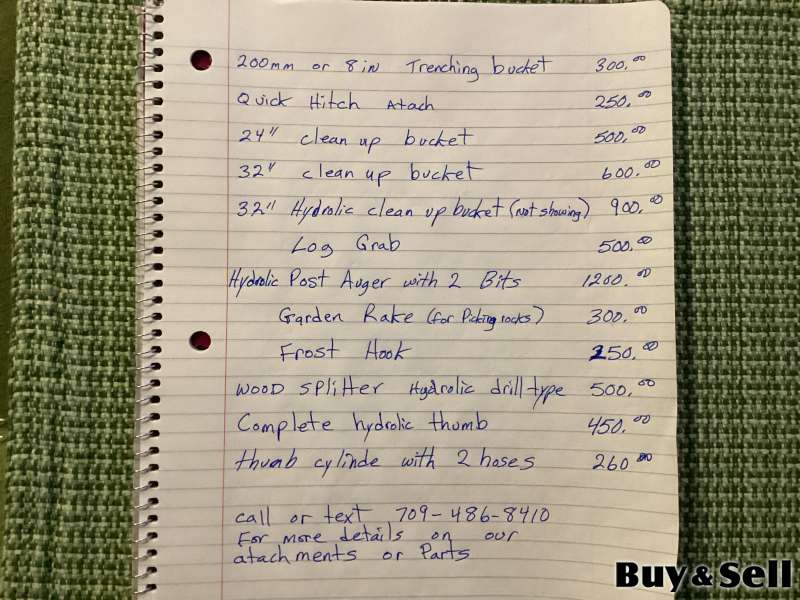 200mm or 8in Trenching bucket 300.00
Quick Hitch Atach 250.00
24" clean up bucket 500.00
32" clean up bucket 600.00
32" Hydrolic clean up bucket (not showing) 900.00
Log Grab 500.00
Hydrolic Post Auger with 2 Bits 1200.00
Garden Rake (for Picking rocks) 300.00
Frost Hook 250.00
WOOD SPlitter Hydrolic drill type 500.00
Complete hydrolic thumb 450.00
thumb cylinde with 2 hoses 260 00
call or text 709-486-8410
For more details on our
atachments or Parts
Buy & Sell